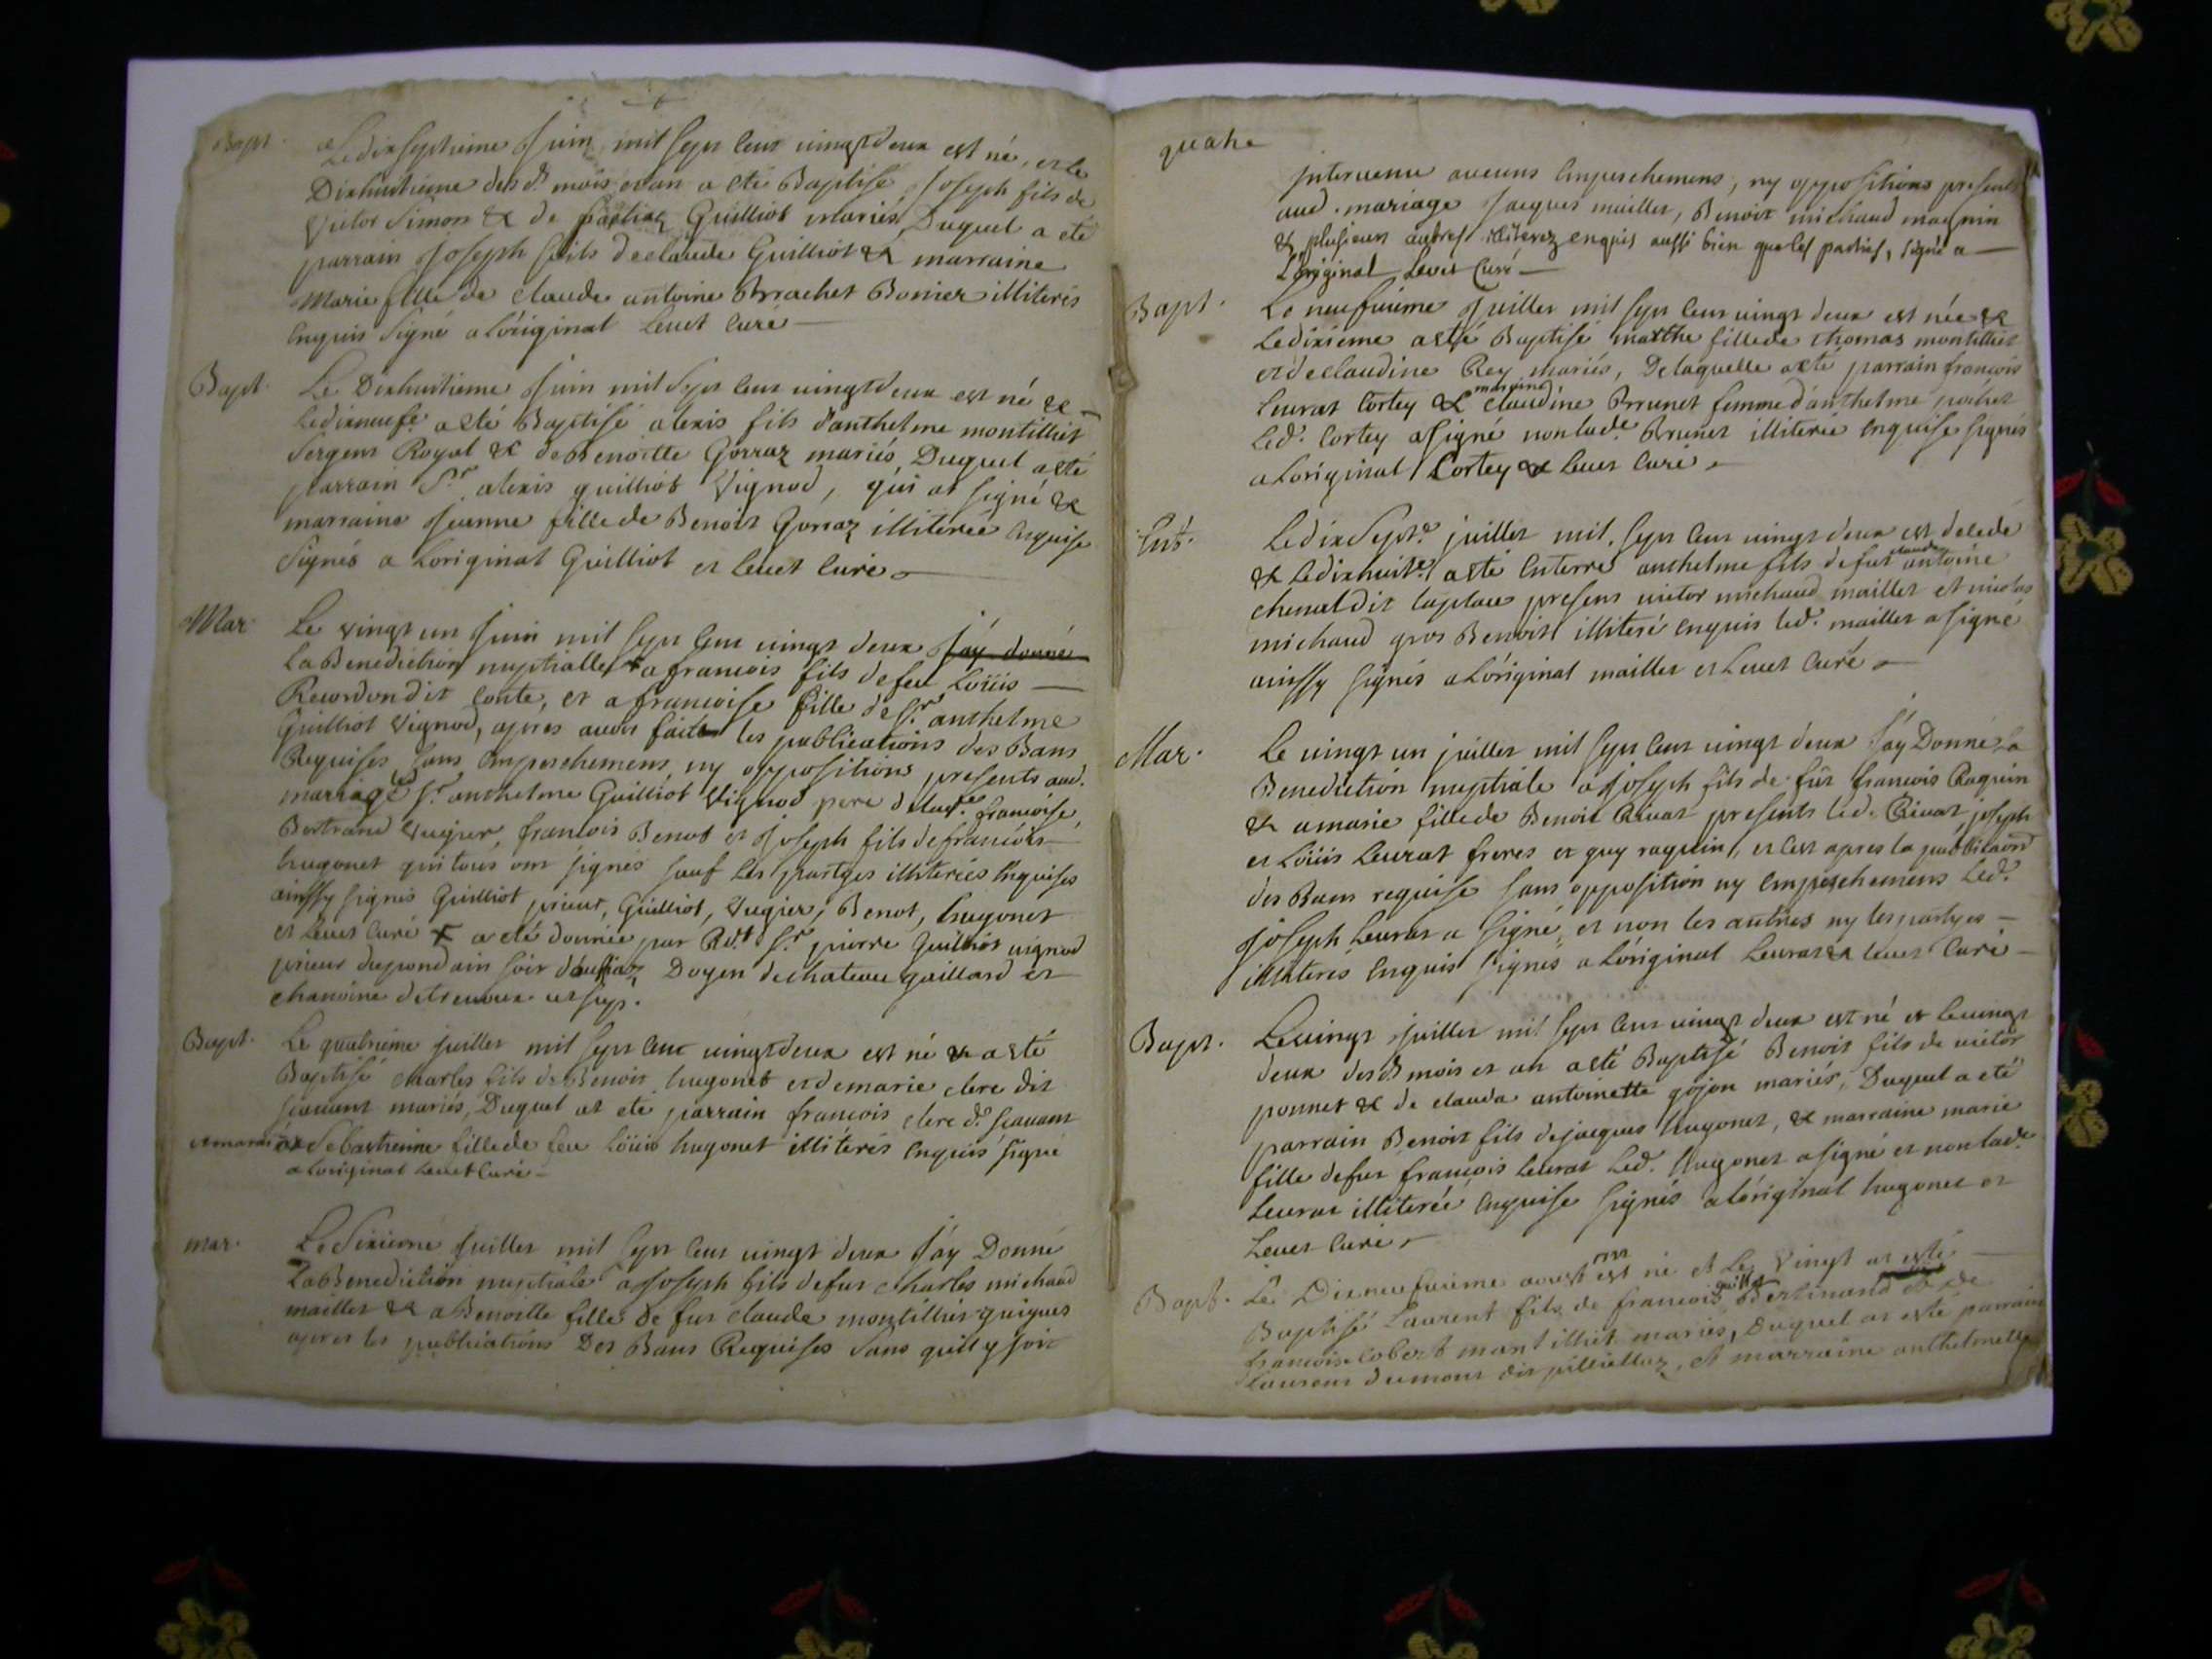 Bapt. Le dix septieme Juin mil sept cent vingt deux est né, et le
Dixhuitieme desd. mois et an a eté Baptisé Joseph fils de
Victor Simon & de Guilliot mariés, Duquel a eté
parrain Joseph fils de claude Guilliot & marraine
Marie fille de claude antoine Brachet Bonier illiterés
enquis Signé a Lóriginal Levet Curé
Bapt. Le Dixhuitieme Juin mil Sept cent vingt deux est né &
Ledixneufe. a eté Baptisé alexis fils d'anthelme montillict
Sergent Royal & de Benoitte Gorraz mariés, Duquel a eté
parrain Sr. alexis guilliot Vignod, qui at signé &
marraine Jeanne fille de Benoit Gorraz illiterée enquise
Signés a Loriginal Guilliot et Levet Curé
Mar. Le vingt un Juin mil sept cent vingt deux J'áy donné
La Benediction nuptialle + a francois fils de feu Loüis
Recordon dit Conte, et a francoise fille de Sr. anthelme
Guilliot Vignod, apres avoir faites les publications des Bans
Requises, sans empeschemens ny oppositions presents aud.
mariage led. Sr. anthelme Guilliot Vignod pere de lade. francoise,
Bertrand Vugier, francois Benot et Joseph fils de francois
hugonet qui tous ont signés sauf les partyes illiterées Enquises
ainssy signés Guilliot prieur, Guilliot, Vugier, Benot, hugonet
et Levet Curé + a eté donnée par Rdt. Sr. pierre Guilliot vignod
prieur Doyen de chateau gaillard et
chanoine de trevoux ut sup.
Bapt. Le quatrieme juillet mil sept cent vingt deux est né & a eté
Baptisé charles fils de Benoit hugonet et de marie clerc dit
scavant mariés, Duquel at eté parrain francois clerc d. scavant
et Sebastienne fille de feu Loüis hugonet illiterés enquis signé
a Loriginal Levet Curé
mar. Le Sixieme Juillet mil sept cent vingt deux J'áy Donné
La Benediction nuptiale a Joseph fils de fut charles michaud
maillet & a Benoitte fille de fut claude montillict guigues
apres les publications Des Bans Requises Sans quil y soit
quatre
intervenu aucuns empeschemens, ny oppositions presents
aud. mariage Jacques maillet, Benoit michaud magnin
& plusieurs autres illiterez enquis aussi bien que les parties, signé a
Lóriginal Levet Curé
Bapt. Le neufvieme Juillet mil sept cent vingt deux est née &
Le dixieme a eté Baptisé marthe fille de thomas montillict
et de claudine Rey mariés, De laquelle a eté parrain francois
Leurat Cortey & marraine claudine Brunet femme d'anthelme pochet
Led. Cortey a signé non lade. Brunet illiterée enquise signés
a Loriginal Cortey & Levet Curé
Ent. Le dix Septe. juillet mil sept cent vingt deux est decedé
& Le dixhuite. a eté Enterré anthelme fils de fut claude antoine
chenal dit laplace presens victor michaud maillet et nicolas
michaud gros Benoist illiteré enquis led. maillet a signé
ainssy signés a Lóriginal maillet et Levet Curé
Mar. Le vingt un juillet mil sept cent vingt deux J'áy Donné la
Benediction nuptiale a Joseph fils de fût francois Raquin
& a marie fille de Benoit Rivat presents led. Rivat, joseph
et Loüis Leurat freres et guy raquin, et c'est apres la publication
des Bans requise sans opposition ny empeschemens Led.
Joseph Leurat a signé, et non les autres ny les partyes
illiterés enquis signés a Lóriginal Leurat & Levet Curé
Bapt. Le vingt juillet mil sept cent vingt deux est né et le vingt
deux desd. mois et an a eté Baptisé Benoit fils de victor
ponnet & de clauda antoinette gojon mariés, Duquel a eté
parrain Benoit fils de jacques hugonet, & marraine marie
fille de fut francois Leurat Led. hugonet a signé et non lade.
Leurat illiterée enquise signés a lóriginal hugonet et
Levet Curé
Bapt. Le Dixneufvieme aoust est né et Le Vingt at esté
Baptisé Laurent fils de francois et de
francoise Cobert montillict mariés, Duquel at esté parrain
Laurent dumont dit pilliellaz, et marraine anthelmette